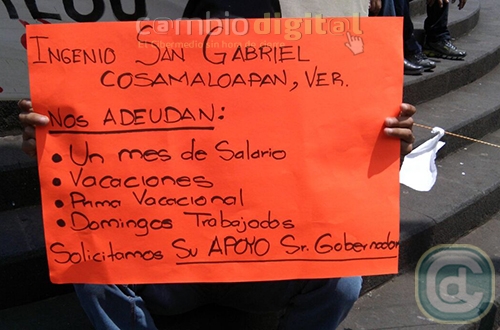 cambiodigital
El Cibermedio sin hora de cierre
INGENIO SAN GABRIEL
COSAMALOAPAN, VER.
NOS ADEUDAN:
• Un mes de Salario
• Vacaciones
• Prima Vacacional
• Domingos Trabajados
Solicitamos Su APOYO Sr. Gobernador